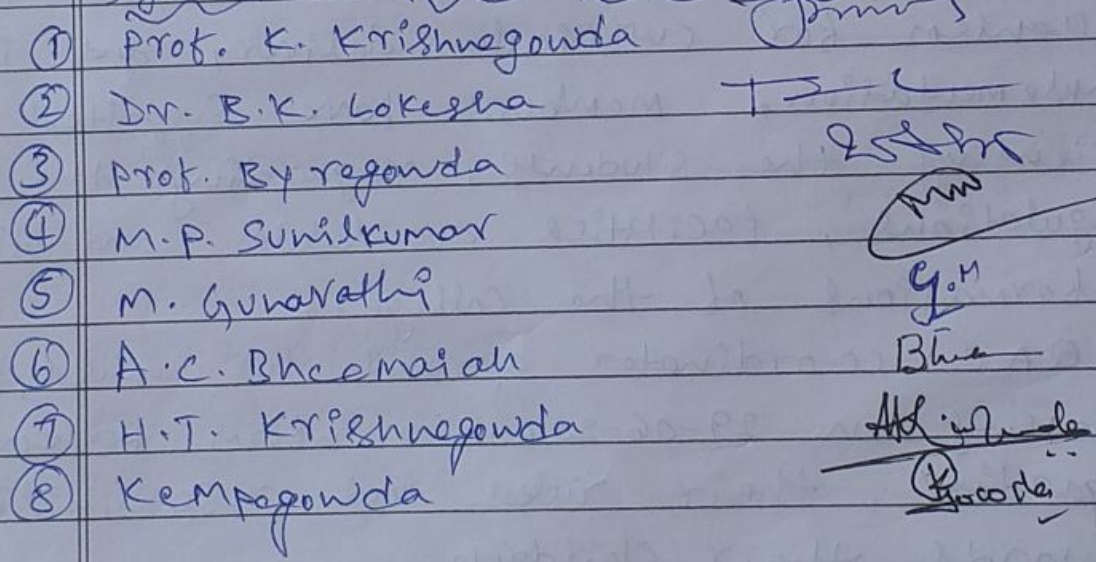 ① Prof. K. Krishnegowda
② Dr. B.K. Lokesha
③ Prof. Byregowda
④ M.P. Sunilkumar
⑤ M. Gunavathi G.M
⑥ A.C. Bheemaiah
⑦ H.T. Krishnegowda
⑧ Kempegowda